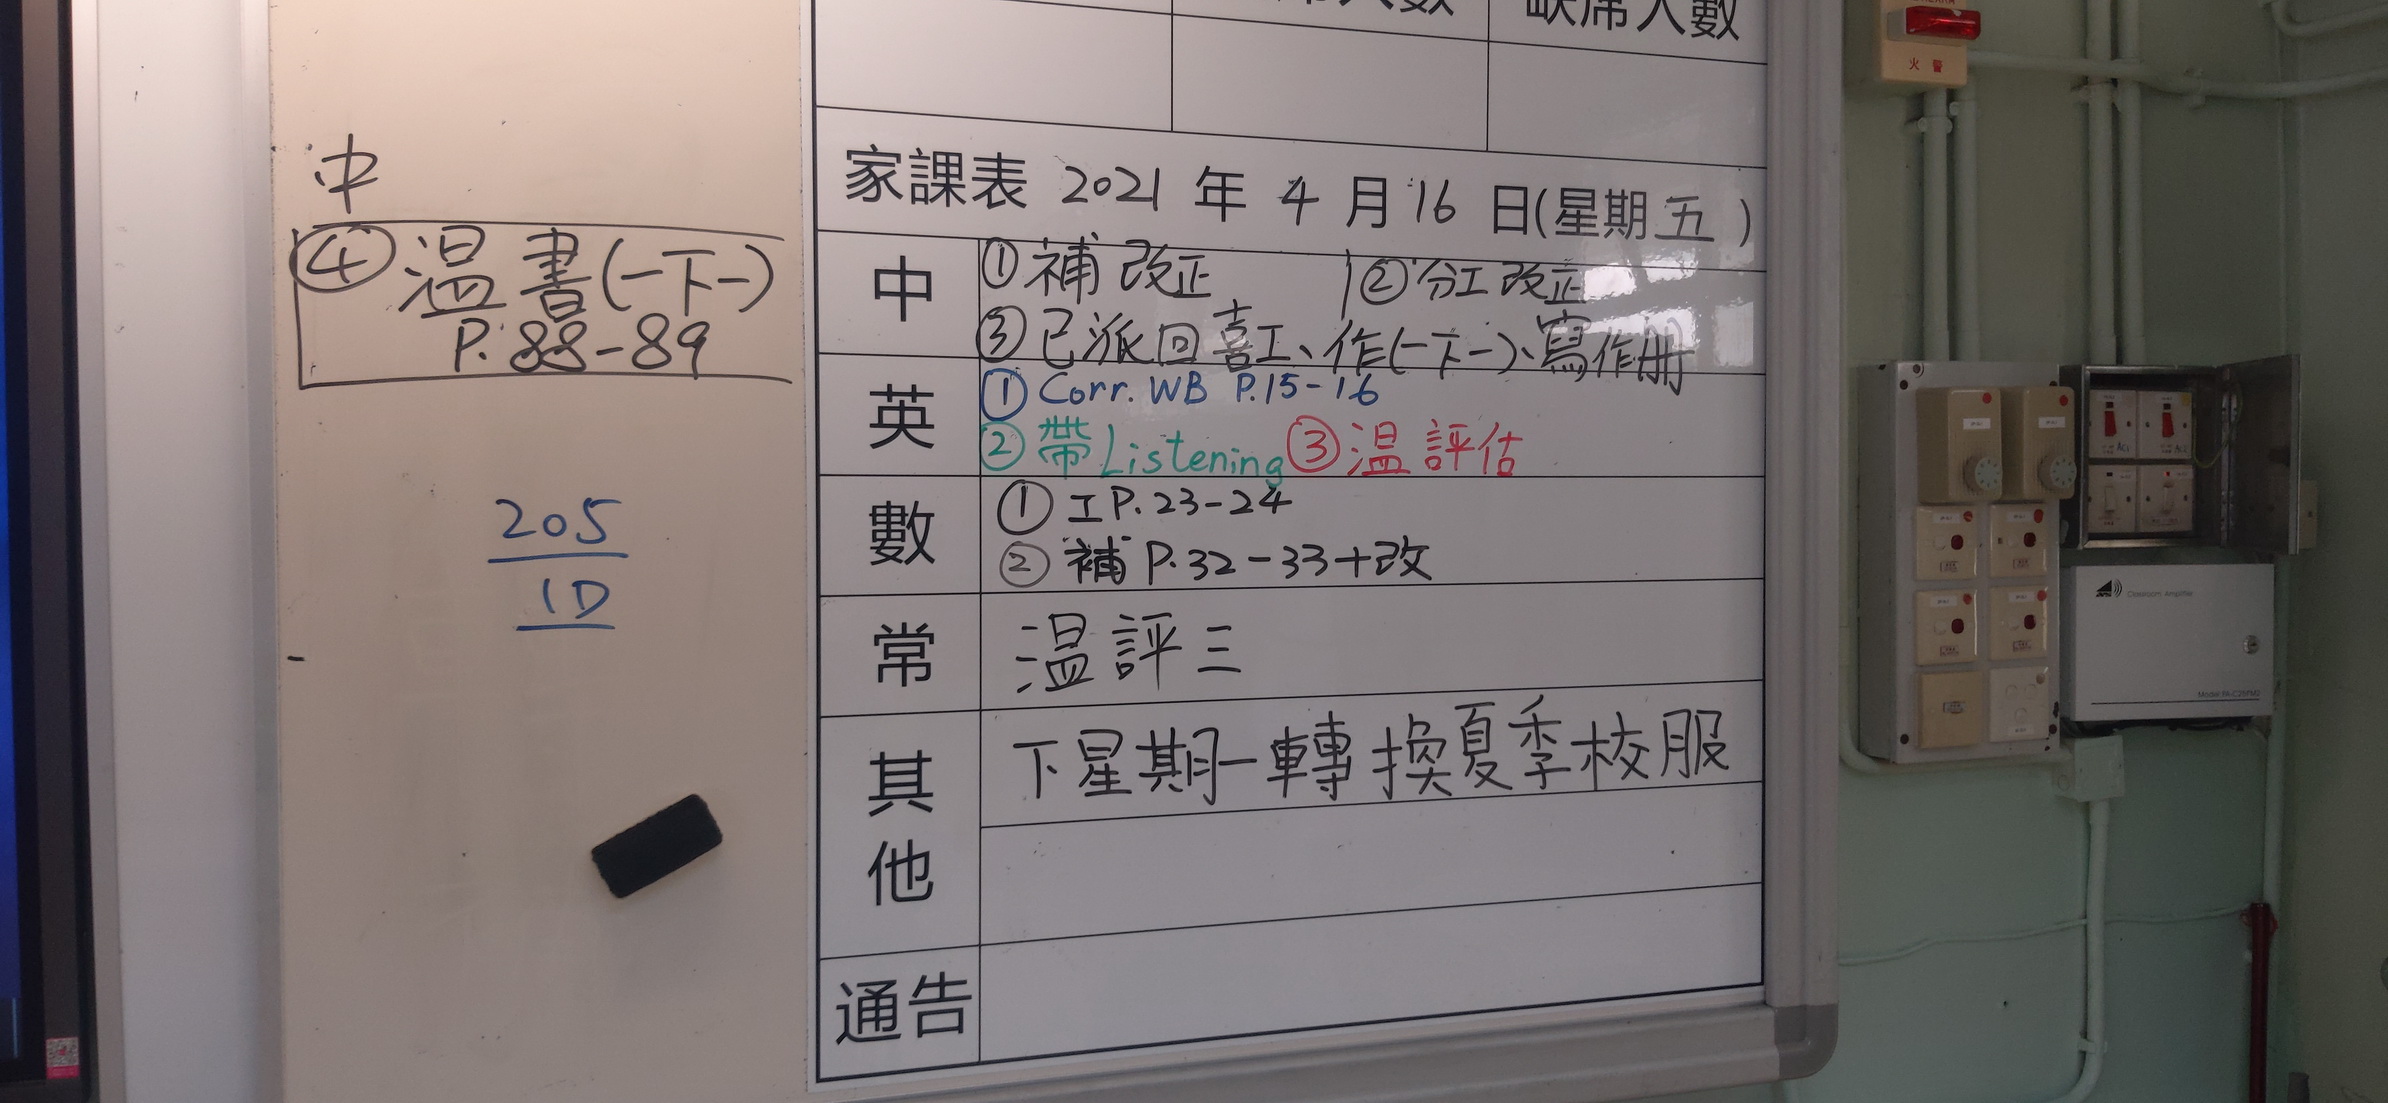 缺席人數
火警
中
④溫書(一下一)
P.88-89
205
1D
家課表 2021 年 4 月 16 日(星期五)
中
①補改正 ②分工改正
③已派回喜工、作(一下一)、寫作冊
英
① Corr. WB P.15-16
②帶Listening ③溫評估
數
① 工P.23-24
② 補 P.32-33+改
常
溫評三
其他
下星期一轉換夏季校服
通告
Classroom Amplifier